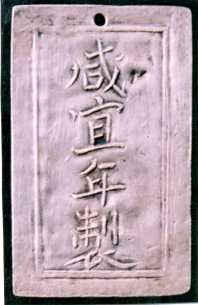 咸
宜
年
製